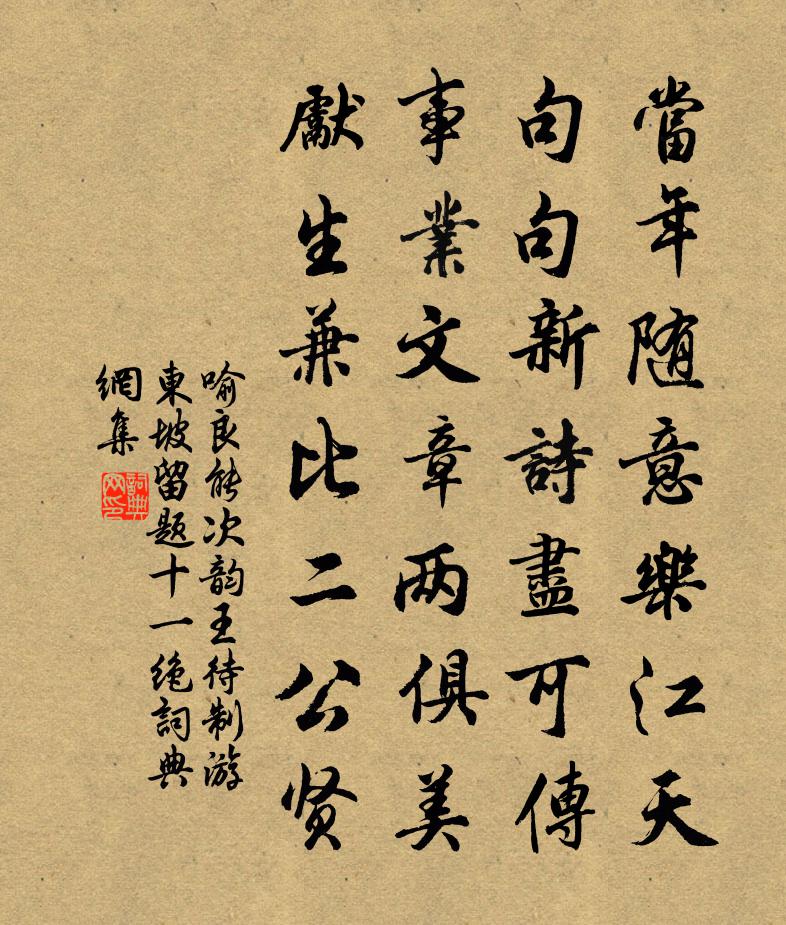 當年随意樂江天
句句新詩盡可傳
事業文章两俱美
獻生兼比二公贤
喻良能次韵王待制游
東坡留题十一绝詞典
網集
詞典网印